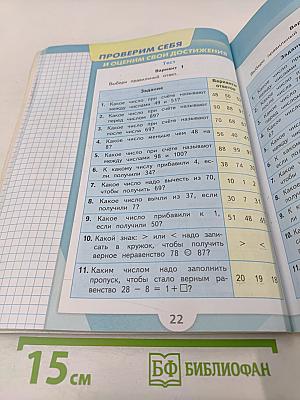 ПРОВЕРИМ СЕБЯ
И ОЦЕНИМ СВОИ ДОСТИЖЕНИЯ
Тест
Вариант 1
Выбери правильный ответ.
Задание
Варианты
ответов
1. Какое число при счёте называют
между числами 49 и 51?
48 50
2. Какое число при счёте называют
перед числом 69?
90 88
3. Какое число при счёте называют
после числа 69?
70 68
4. Какое число меньше чем 48 на
8?
5. Какое число при счёте называют
между числами 98 и 100?
6. К какому числу прибавили 4, ес-
ли получили 34?
38 74
7. Какое число надо вычесть из 70,
чтобы получить 69?
10
8. Какое число вычли из 37, если
получили 7?
30 7
9. Какое число прибавили к 1,
если получили 50?
51 48
10. Какой знак: > или < надо запи-
сать в кружок, чтобы получить
верное неравенство 78 ○ 87?
> <
11. Каким числом надо заполнить
пропуск, чтобы стало верным ра-
венство 28 – 8 = 1 + □?
20 19 18
22
15 см
БФ БИБЛИОФАН